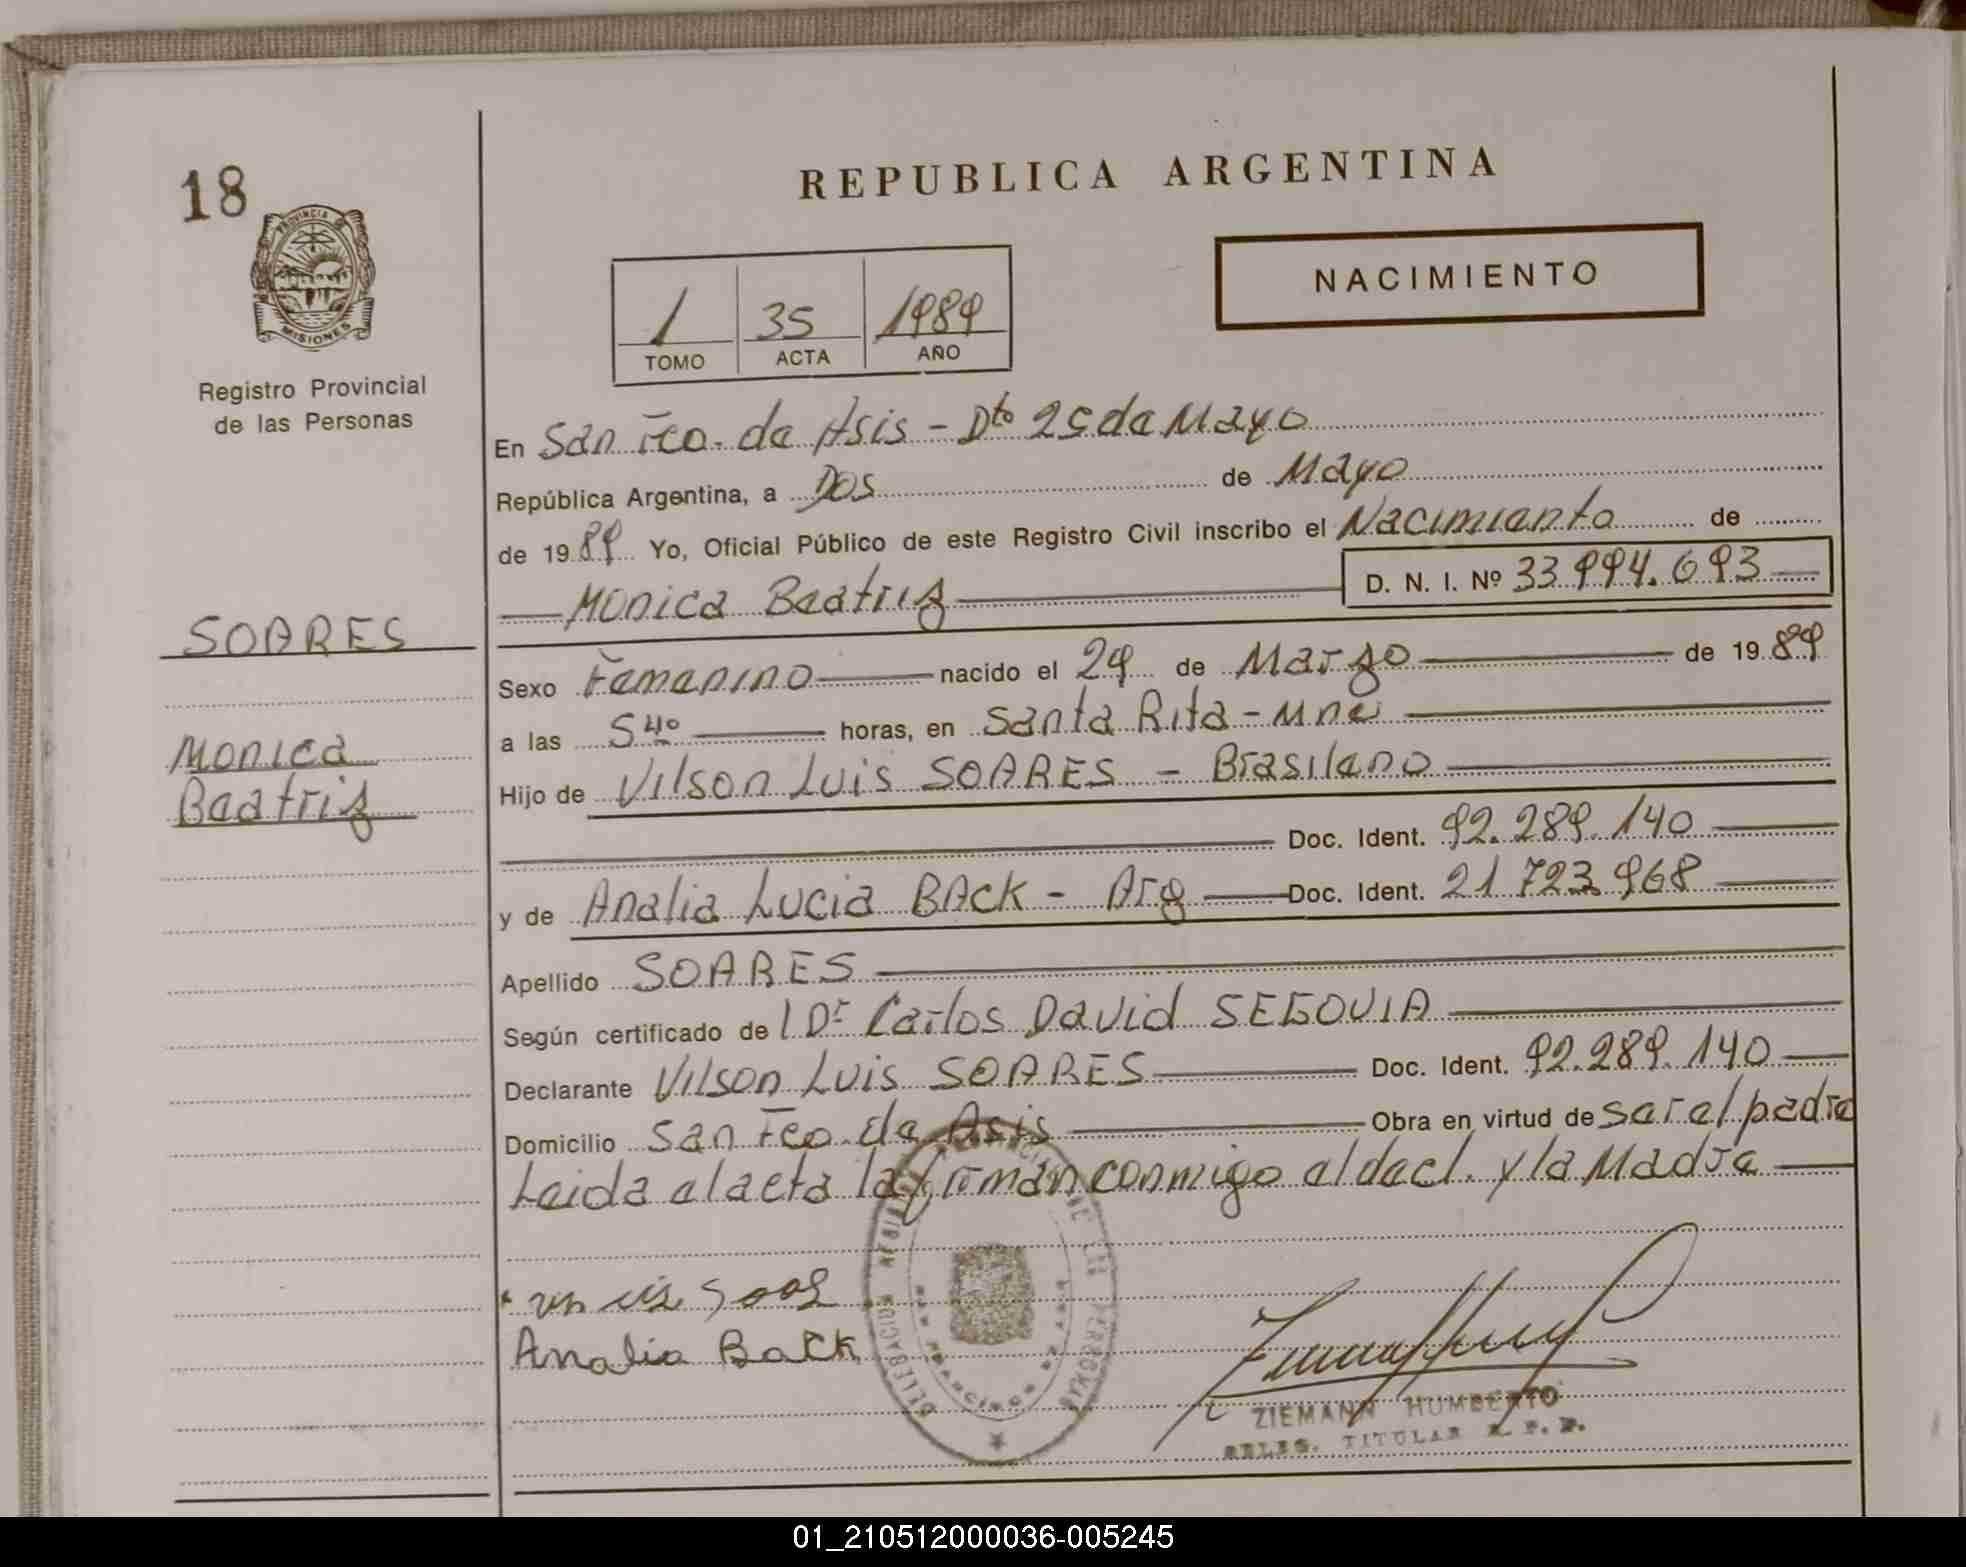 18
PROVINCIA DE
MISIONES
Registro Provincial
de las Personas
REPUBLICA ARGENTINA
NACIMIENTO
1 35 1989
TOMO ACTA AÑO
En San Fco. de Asis - Dto 25 de Mayo
República Argentina, a Dos de Mayo
de 1989 Yo, Oficial Público de este Registro Civil inscribo el Nacimiento de
Monica Beatriz D. N. I. Nº 33.994.693
SOARES
Monica
Beatriz
Sexo Femenino nacido el 29 de Marzo de 1989
a las 5 40 horas, en Santa Rita - Mnes
Hijo de Vilson Luis SOARES - Brasileno
Doc. Ident. 92.289.140
y de Analia Lucia BACK - Arg Doc. Ident. 21.723.968
Apellido SOARES
Según certificado de l Dr Carlos David SEGOVIA
Declarante Vilson Luis SOARES Doc. Ident. 92.289.140
Domicilio San Fco. de Asis Obra en virtud de ser el padre
Leida el acta la firman conmigo el decl. y la Madre
Analia Back
DELEGACION REGISTRO PROVINCIAL DE LAS PERSONAS
SAN FRANCISCO DE ASIS
ZIEMANN HUMBERTO
DELEG. TITULAR R. P. P.
01_210512000036-005245